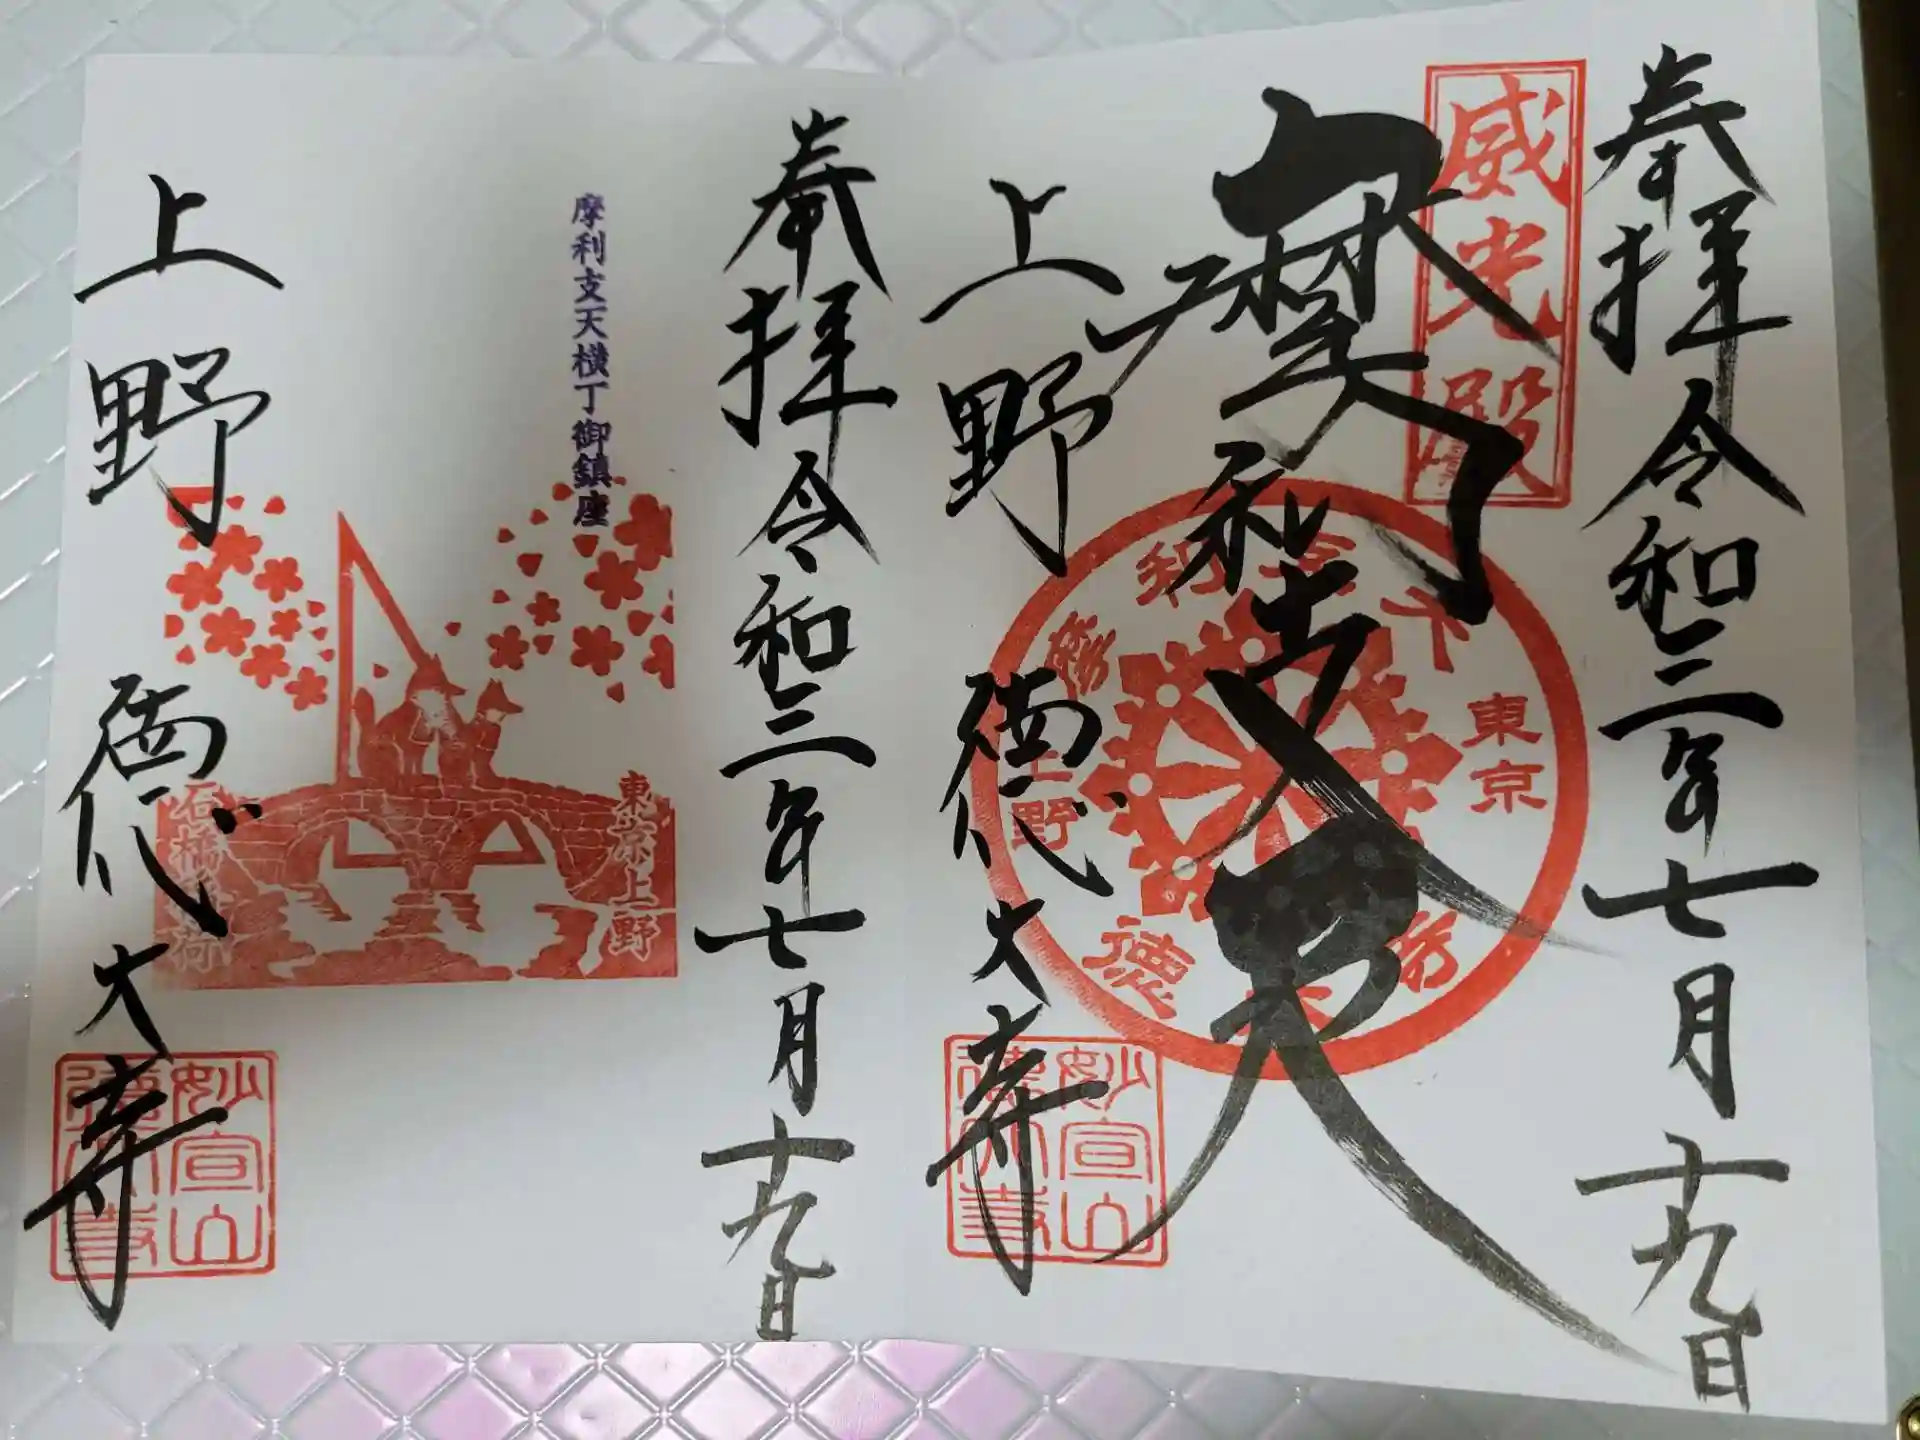 奉拝 令和三年七月十九日
威光殿
摩利支天
下谷 摩利支天
東京
上野
徳大寺
上野 徳大寺
妙宣山
徳大寺
奉拝 令和三年七月十九日
摩利支天横丁御鎮座
東京上野
石橋稲荷
上野 徳大寺
妙宣山
徳大寺